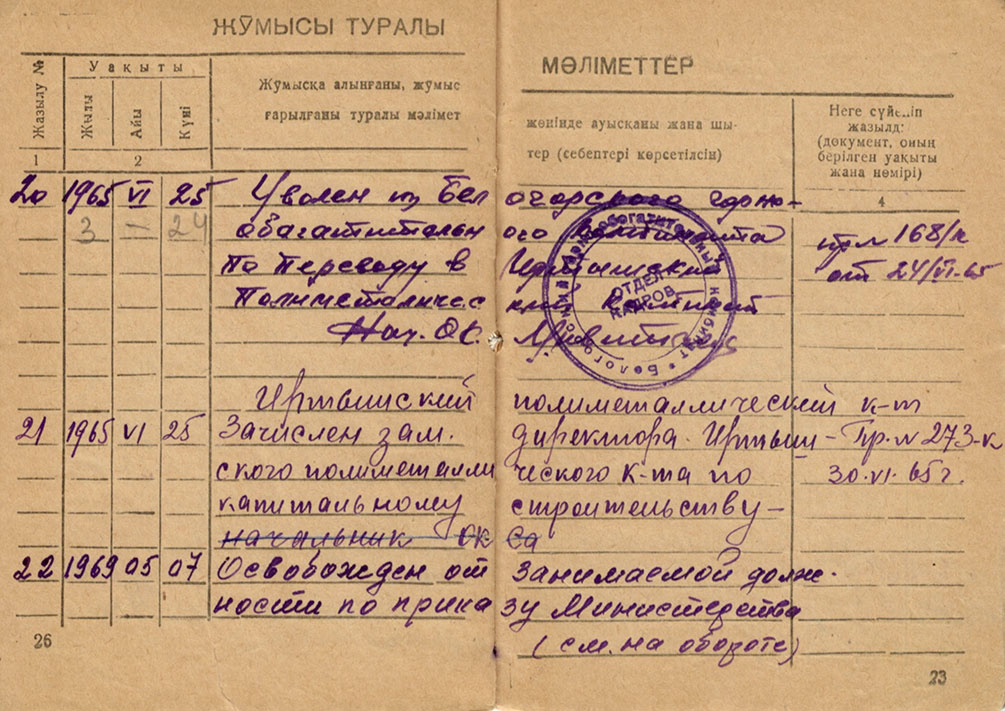 ЖӮМЫСЫ ТУРАЛЫ
МӘЛІМЕТТЕР
Жазылу №
Уақыты
Жылы
Айы
Күні
Жӯмысқа алынғаны, жӯмыс
ғарылғаны туралы мәлімет
жөнінде ауысқаны жана шы-
тер (себептері көрсетілсін)
Неге сүйеніп
жазылд:
(документ, оның
берілген уақыты
жана нөмірі)
1 2 4
20 1965 VI 25 Уволен из Белогорского горно-
3 24
обагатительного комбината прл 168/к
По переводу в Иртышский от 24/VI-65
Полиметаличес кий комбинат
Нач. ОК
ОТДЕЛ
КАДРОВ
Иртышский полиметаллический к-т
21 1965 VI 25 Зачислен зам. директора Иртыш- Пр. № 273-к
ского полиметаллического к-та по 30.VI.65г.
капитальному строительству-
начальник ОКСа
22 1969 05 07 Освобожден от занимаемой долж-
ности по приказу Министерства
(см. на обороте)
26
23